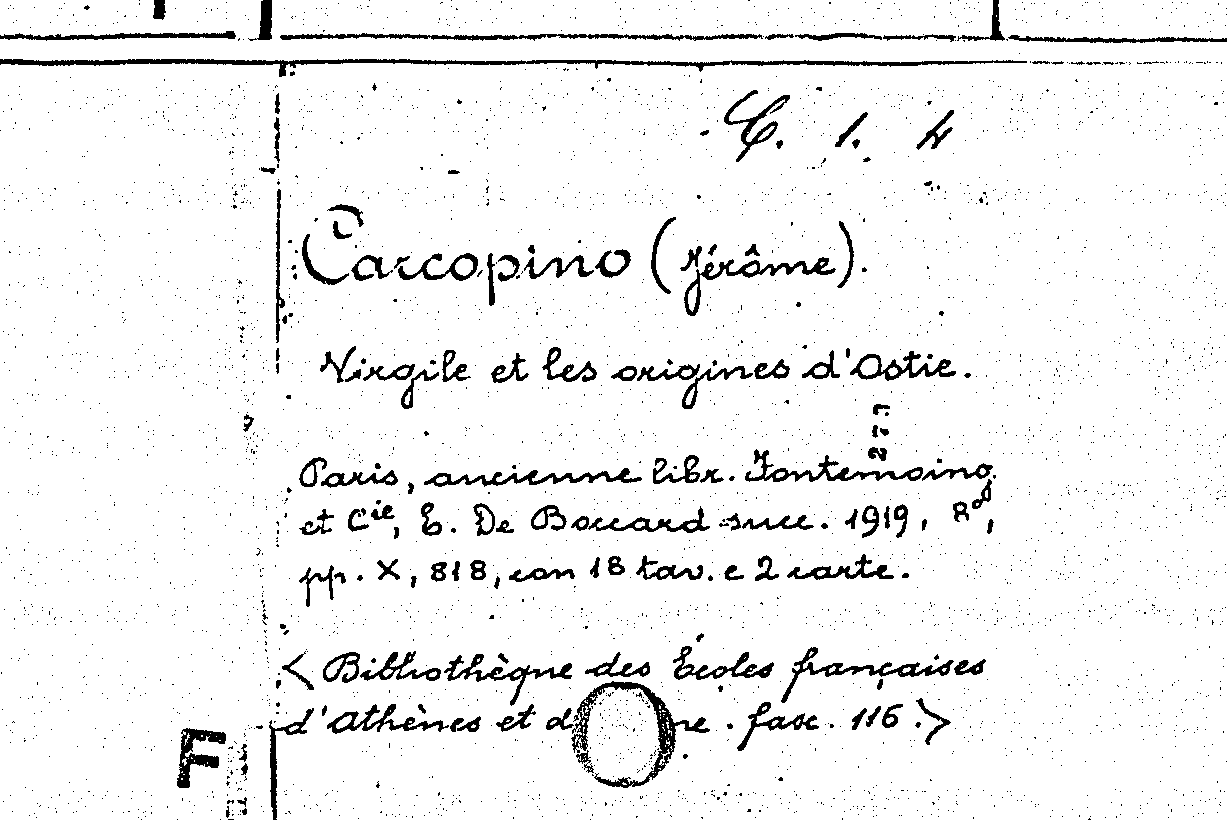 C. 1. 4
Carcopino (Jérôme).
Virgile et les origines d'Ostie.
271
Paris, ancienne libr. Fontemoing
et Cie, E. De Boccard succ. 1919, 8°,
pp. X, 818, con 18 tav. e 2 carte.
<Bibliothèque des Écoles françaises
d'Athènes et d ne. fasc. 116.>
F